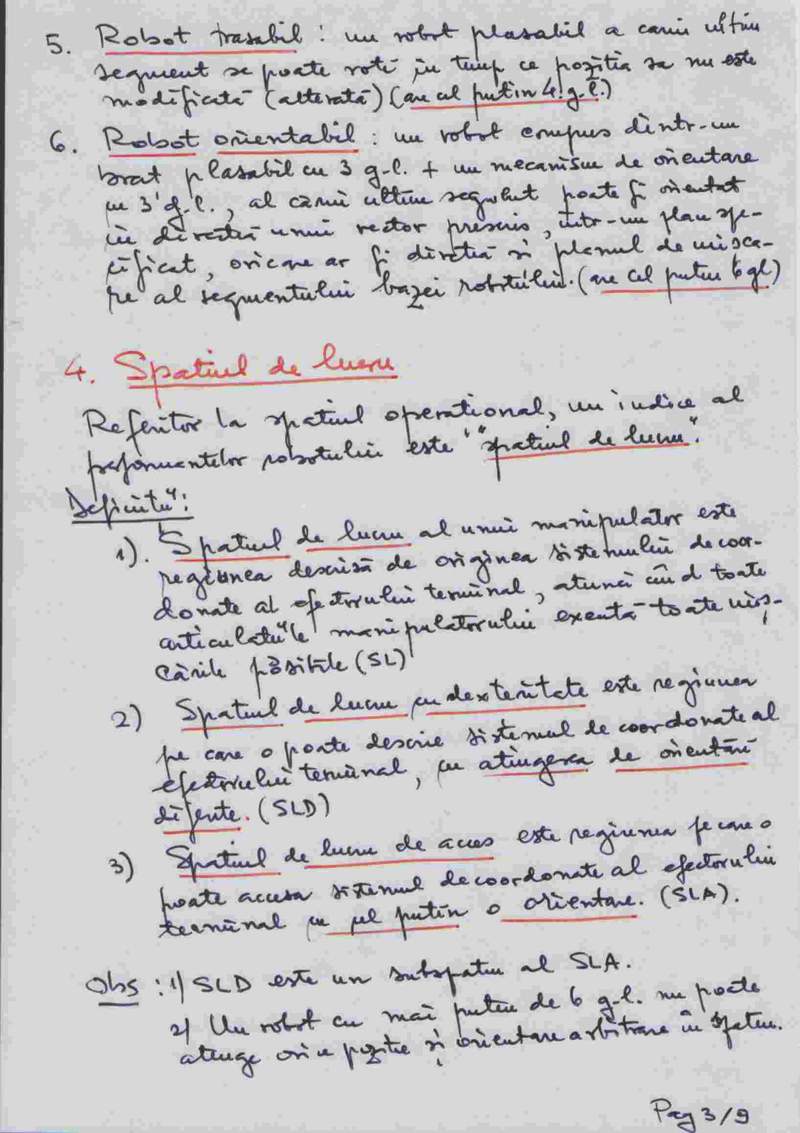 5. Robot trasabil : un robot plasabil a carui ultim
segment se poate roti in timp ce pozitia sa nu este
modificată (alterată) (are cel putin 4 g.l.)
6. Robot orientabil : un robot compus dintr-un
brat plasabil cu 3 g.l. + un mecanism de orientare
cu 3 g.l., al carui ultim segment poate fi orientat
in directia unui vector prescris, intr-un plan spe-
cificat, oricare ar fi directia si planul de misca-
re al segmentului bazei robotului. (are cel putin 6 gl)
4. Spatiul de lucru
Referitor la spatiul operational, un indice al
performantelor robotului este "spatiul de lucru".
Definitii:
1). Spatiul de lucru al unui manipulator este
regiunea descrisă de originea sistemului de coor-
donate al efectorului terminal, atunci când toate
articulatiile manipulatorului execută toate miș-
cările posibile (SL)
2) Spatiul de lucru cu dexteritate este regiunea
pe care o poate descrie sistemul de coordonate al
efectorului terminal, cu atingerea de orientări
diferite. (SLD)
3) Spatiul de lucru de acces este regiunea pe care o
poate accesa sistemul de coordonate al efectorului
terminal cu cel putin o orientare. (SLA).
Obs : 1) SLD este un subspatiu al SLA.
2) Un robot cu mai putin de 6 g.l. nu poate
atinge orice pozitie și orientare arbitrare în spatiu.
Pag 3/9